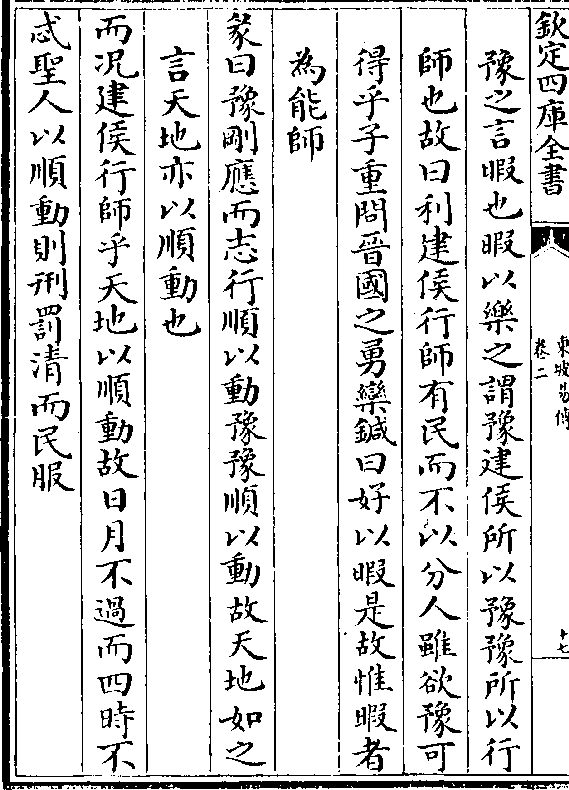 欽定四庫全書
東坡易傳
卷二
十七
豫之言暇也暇以樂之謂豫建侯所以豫豫所以行
師也故曰利建侯行師有民而不以分人雖欲豫可
得乎子重問晉國之勇欒鍼曰好以暇是故惟暇者
為能師
彖曰豫剛應而志行順以動豫豫順以動故天地如之
言天地亦以順動也
而況建侯行師乎天地以順動故日月不過而四時不
忒聖人以順動則刑罰清而民服